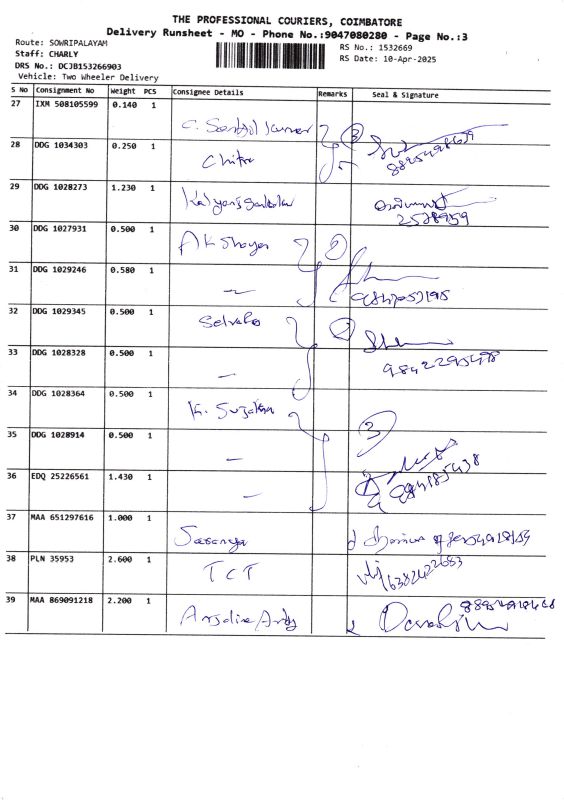 THE PROFESSIONAL COURIERS, COIMBATORE
Delivery Runsheet - MO - Phone No.:9047080280 - Page No.:3
Route: SOWRIPALAYAM
Staff: CHARLY
DRS No.: DCJB153266903
Vehicle: Two Wheeler Delivery
RS No.: 1532669
RS Date: 10-Apr-2025
S No Consignment No Weight PCS Consignee Details Remarks Seal & Signature
27 IXM 508105599 0.140 1
28 DDG 1034303 0.250 1 Chitra
29 DDG 1028273 1.230 1 2528959
30 DDG 1027931 0.500 1 Akshaya 2
31 DDG 1029246 0.580 1 -
32 DDG 1029345 0.500 1 2
33 DDG 1028328 0.500 1 - 9842295498
34 DDG 1028364 0.500 1 K. Sujatha
35 DDG 1028914 0.500 1 - 3
36 EDQ 25226561 1.430 1 -
37 MAA 651297616 1.000 1 Saranya
38 PLN 35953 2.600 1 TCT 6382422683
39 MAA 869091218 2.200 1